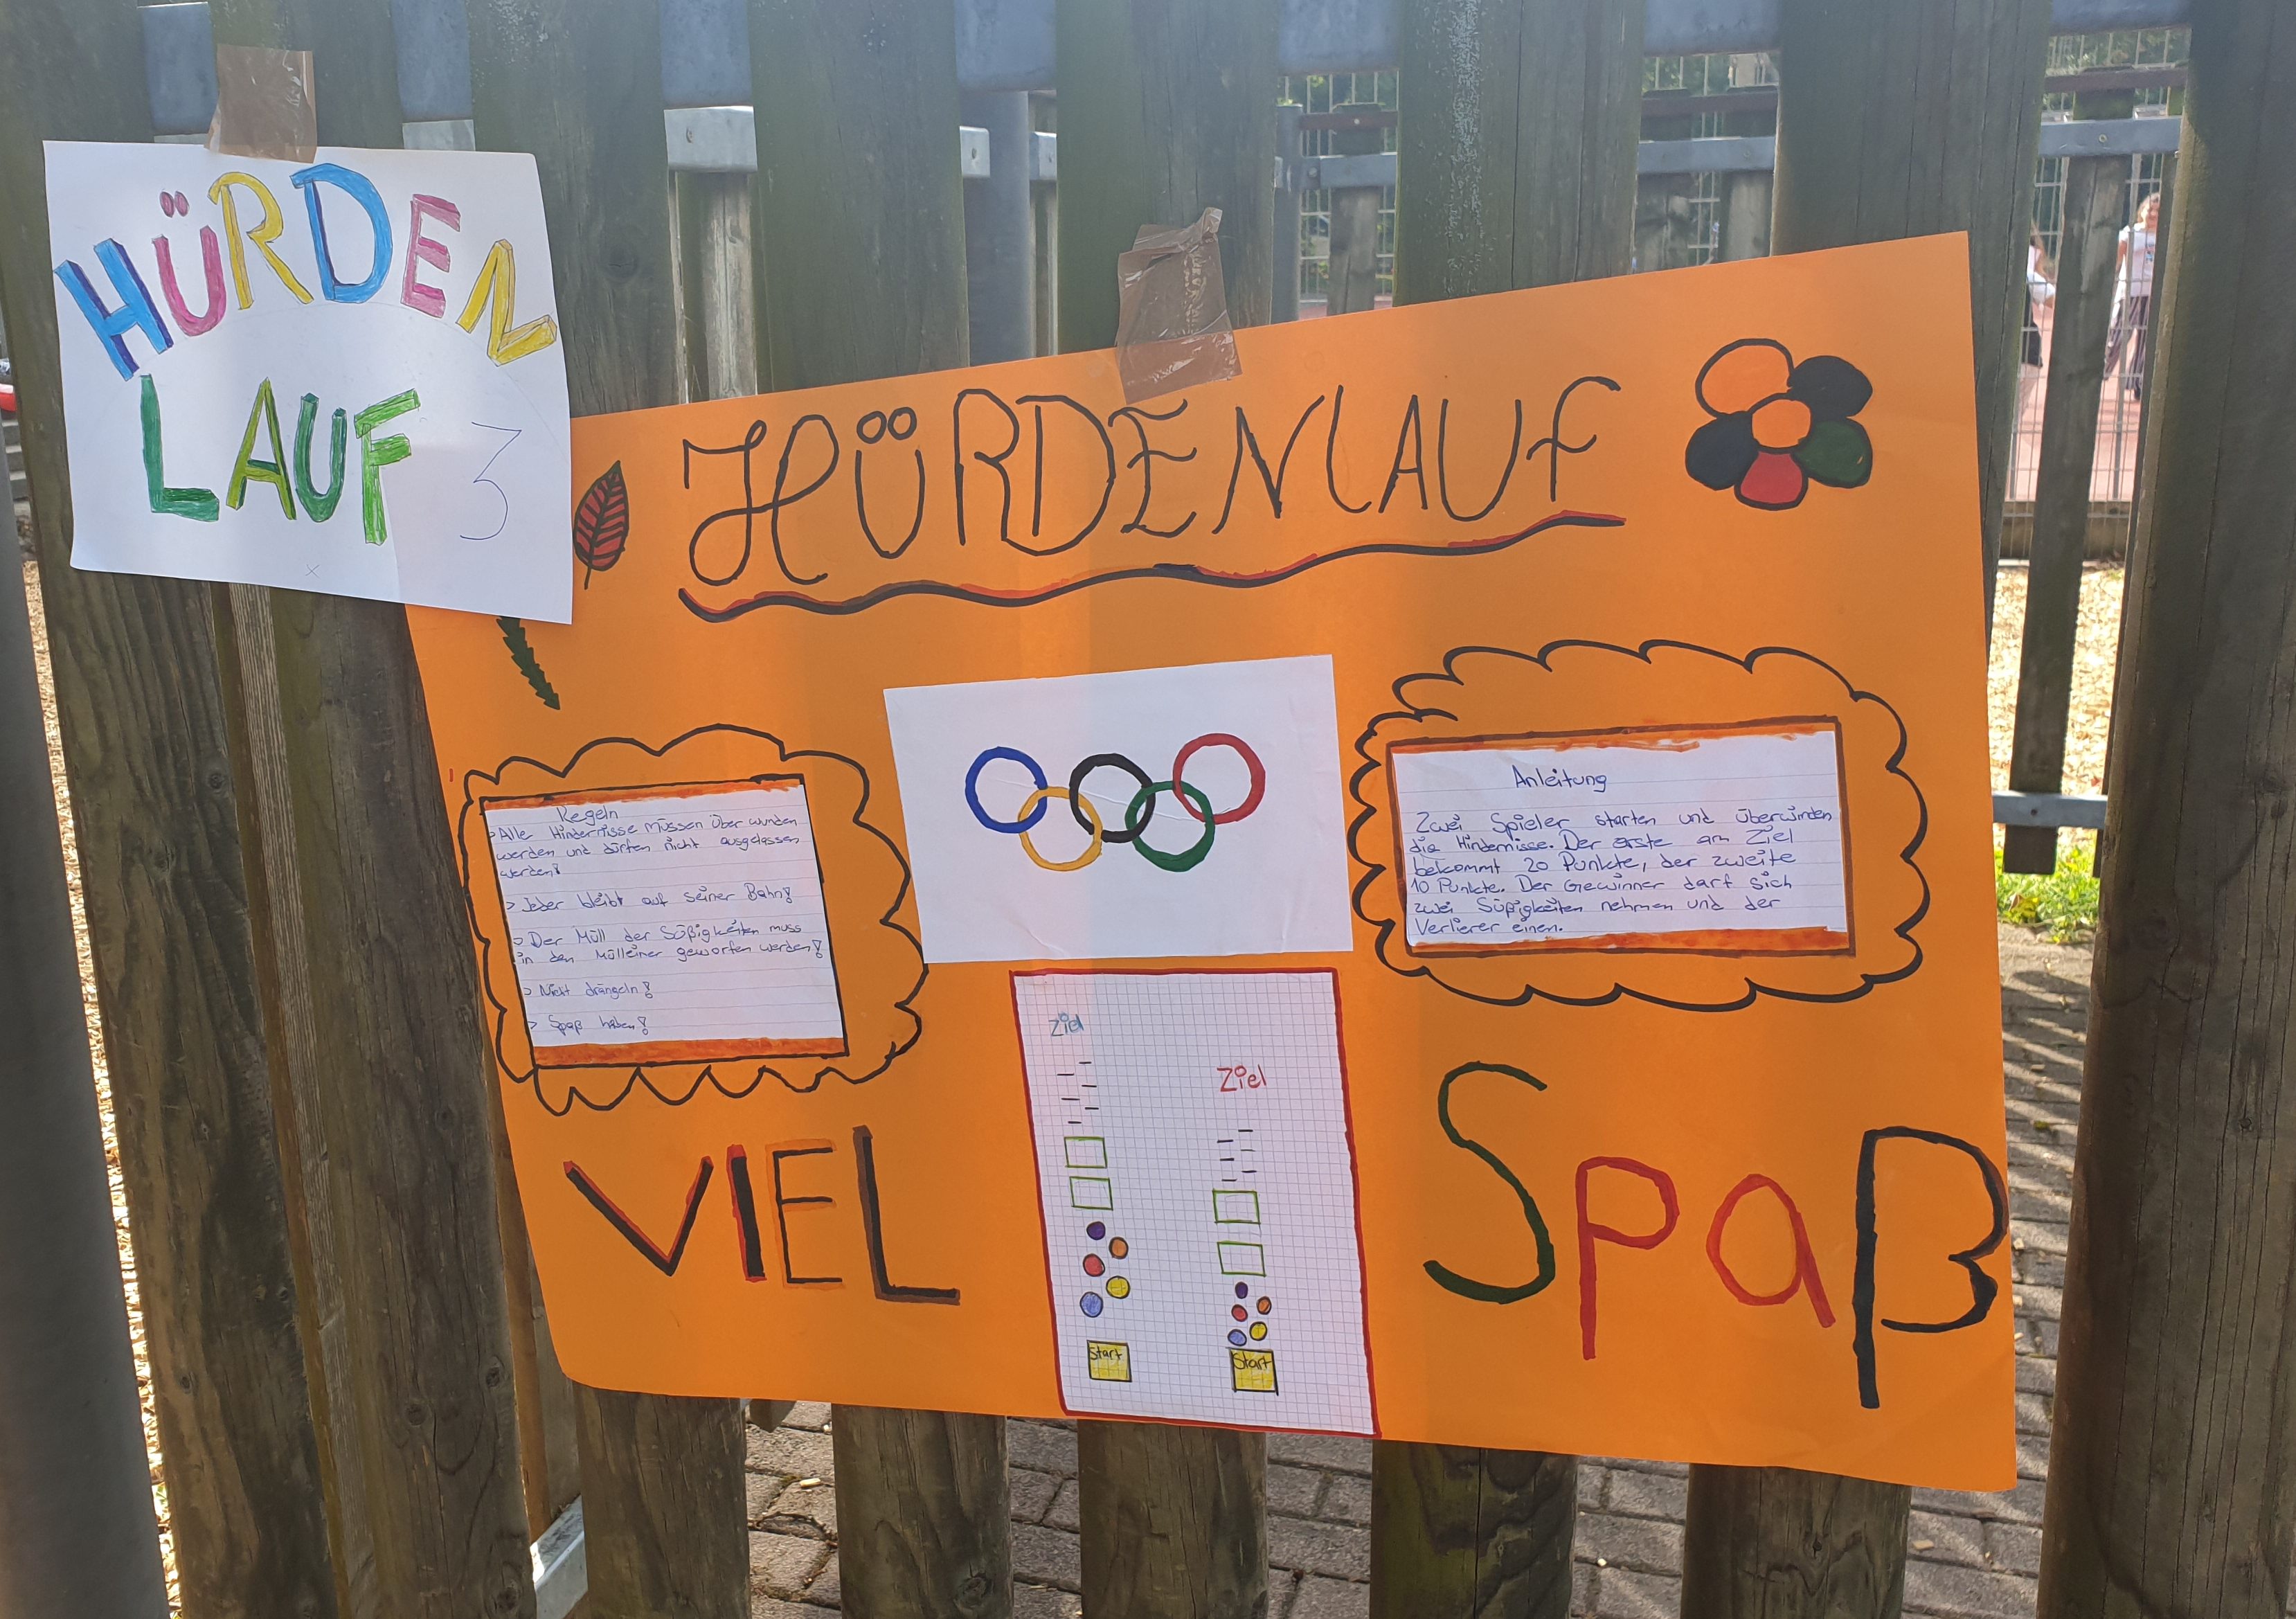 HÜRDEN
LAUF 3
HÜRDENLAUF
Regeln
> Alle Hindernisse müssen überwunden
werden und dürfen nicht ausgelassen
werden!
> Jeder bleibt auf seiner Bahn!
> Der Müll der Süßigkeiten muss
in den Mülleiner geworfen werden!
> Nicht drängeln!
> Spaß haben!
Anleitung
Zwei Spieler starten und überwinden
die Hindernisse. Der erste am Ziel
bekommt 20 Punkte, der zweite
10 Punkte. Der Gewinner darf sich
zwei Süßigkeiten nehmen und der
Verlierer einen.
Ziel
Ziel
Start
Start
VIEL
Spaß